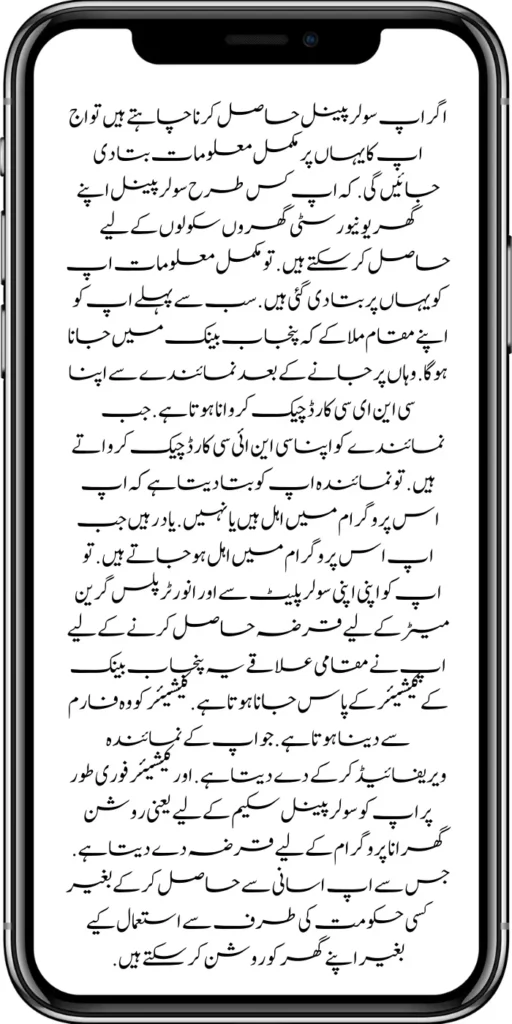 اگر اپ سولر پینل حاصل کرنا چاہتے ہیں تو اج
اپ کا یہاں پر مکمل معلومات بتا دی
جائیں گی. کہ اپ کس طرح سولر پینل اپنے
گھر یونیورسٹی گھروں سکولوں کے لیے
حاصل کر سکتے ہیں. تو مکمل معلومات اپ
کو یہاں پر بتا دی گئی ہیں. سب سے پہلے اپ کو
اپنے مقام ملا کے کہ پنجاب بینک میں جانا
ہوگا. وہاں پر جانے کے بعد نمائندے سے اپنا
سی این ای سی کارڈ چیک کروانا ہوتا ہے. جب
نمائندے کو اپنا سی این ائی سی کارڈ چیک کرواتے
ہیں. تو نمائندہ اپ کو بتا دیتا ہے کہ اپ
اس پروگرام میں اہل ہیں یا نہیں. یاد رہیں جب
اپ اس پروگرام میں اہل ہو جاتے ہیں. تو
اپ کو اپنی اپنی سولر پلیٹ سے اور انورٹر پلس گرین
میٹر کے لیے قرضہ حاصل کرنے کے لیے
اپ نے مقامی علاقے یہ پنجاب بینک
کے کیشیئر کے پاس جانا ہوتا ہے. کیشیئر کو وہ فارم
سے دینا ہوتا ہے. جو اپ کے نمائندہ
ویریفائیڈ کر کے دے دیتا ہے. اور کیشیئر فوری طور
پر اپ کو سولر پینل سکیم کے لیے یعنی روشن
گھرانا پروگرام کے لیے قرضہ دے دیتا ہے.
جس سے اپ اسانی سے حاصل کر کے بغیر
کسی حکومت کی طرف سے استعمال کیے
بغیر اپنے گھر کو روشن کر سکتے ہیں.